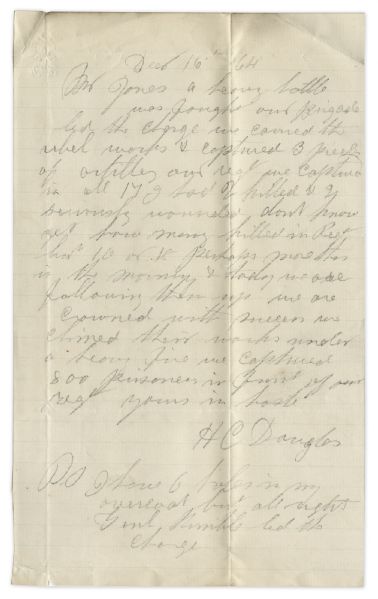 Decr 16th /64
Mr Jones a heavy battle
was fought our brigade
led the charge we carried the
rebel works & captured 3 pieces
of artillery our regt we captured
in all 17 I had 2 killed & 9
seriously wounded, dont know
yet how many killed in Regt
but 10 or perhaps more this
is the morning & today we are
following them up we are
Crowned with success we
climed their works under
a heavy fire we captured
800 prisoners in front of our
regt yours in haste
H C Douglas
PS I have 6 holes in my
overcoat but all right
Genl Kimble led the
charge